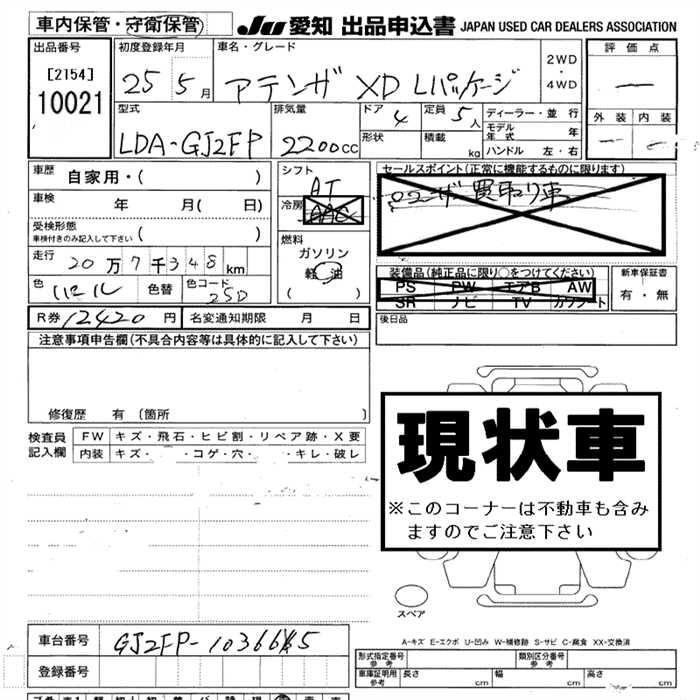 車内保管・守衛保管 JU 愛知 出品申込書 JAPAN USED CAR DEALERS ASSOCIATION
出品番号 初度登録年月 車名・グレード 2WD・4WD 評価点
[2154] 25 5月 アテンザ XD Lパッケージ ー
10021
型式 排気量 ドア 4 定員 5人 ディーラー・並行 外装 内装
LDA-GJ2FP 2200cc 形状 積載 kg モデル年式 年
ハンドル 左・右
車歴 自家用・( ) シフト AT セールスポイント(正常に機能するものに限ります)
車検 年 月( 日) 冷房 AAC 買取り車
受検形態 ( )
車検付きのみ記入して下さい
燃料 ガソリン 軽油 ( )
走行 20万7千348km 装備品(純正品に限り○をつけてください) 新車保証書
色 色替 色コード 25D PS PW エアB AW 有・無
SR ナビ TV カワシート
R券 12420円 名変通知期限 月 日 後日品
注意事項申告欄(不具合内容等は具体的に記入して下さい)
修復歴 有 (箇所
検査員 FW キズ・飛石・ヒビ割・リペア跡・X要
記入欄 内装 キズ・ ・コゲ・穴・ ・キレ・破レ
現状車
※このコーナーは不動車も含み
ますのでご注意下さい
スペア
A-キズ E-エクボ U-凹み W-補修跡 S-サビ C-腐食 XX-交換済
車台番号 形式指定番号 参考 類別区分番号 参考
登録番号 車庫証明用 参考 長さ cm 幅 cm 高さ cm